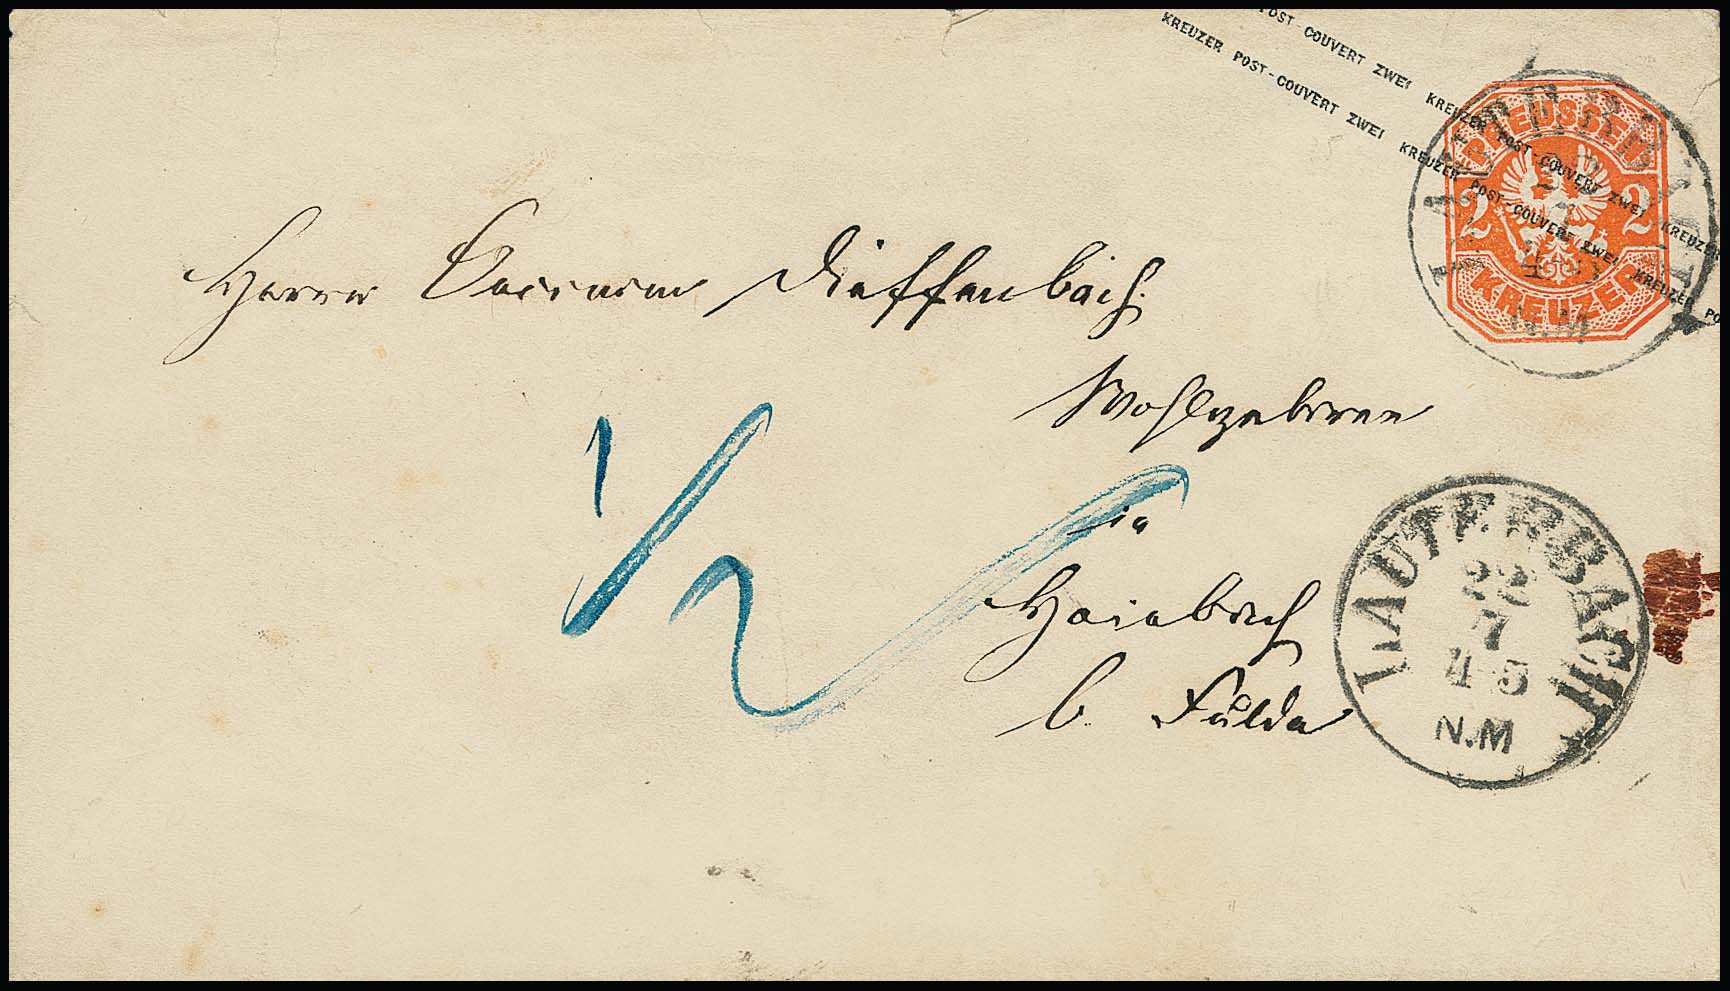 POST-COUVERT ZWEI KREUZER POST-COUVERT ZWEI KREUZER
KREUZER POST-COUVERT ZWEI KREUZER POST-COUVERT ZWEI KREUZER PO
PREUSSEN
2 2
KREUZER
LAUTERBACH
22
7
4-5
N.M
Herrn Dieffenbach.
Wohlgeboren
in
Hainbach
b. Fulda
1/2
LAUTERBACH
22
7
4-5
N.M